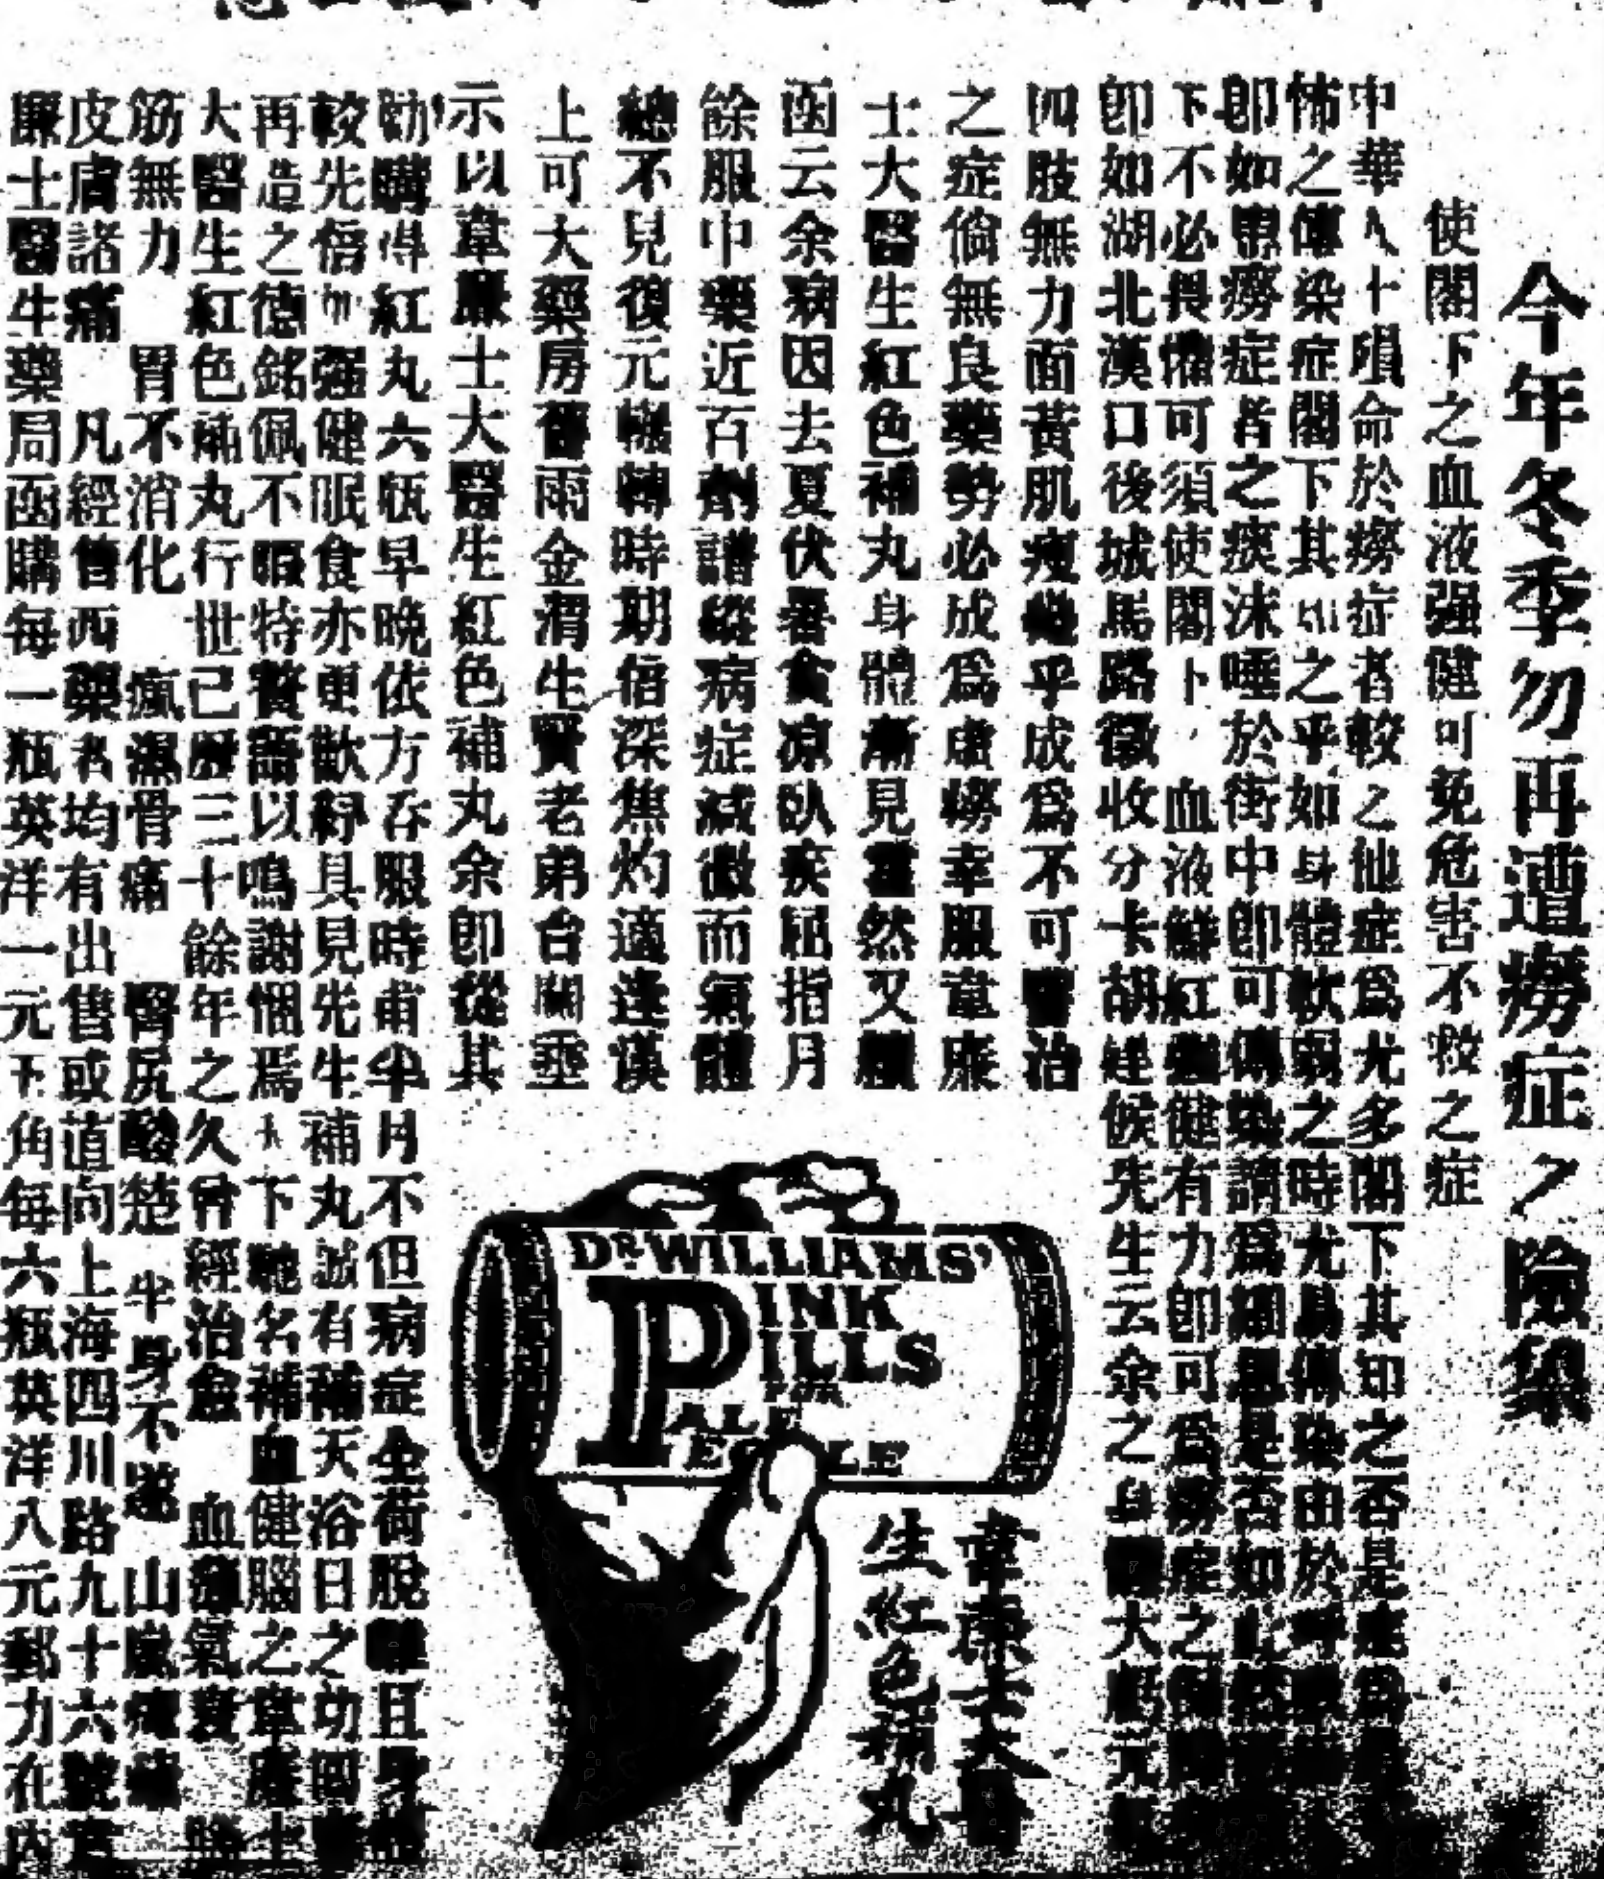 今年冬季勿再遭癆症之險象
使閣下之血液强健可免危害不救之症
中華人士殞命於癆症者較之他症爲尤多閣下其知之否是症爲
怖之傳染症閣下其知之乎如身體軟弱之時尤易傳染由於呼吸
卽如患癆症者之痰沫唾於街中卽可傳染請爲細思是否如此然
下不必畏懼可須使閣下血液鮮紅强健有力卽可爲癆症之
卽如湖北漢口後城馬路徵收分卡胡 候先生云余之身體大虧元
四肢無力面黃肌瘦幾乎成爲不可醫治
之症倘無良藥勢必成爲虛癆幸服韋廉
士大醫生紅色補丸身體漸見 然又
函云余病因去夏伏暑貪凉臥疾屈指月
餘服中藥近百劑譜縱病症減微而氣體
總不見復元機轉時期倍深焦灼適逢漢
上可大藥房舊雨金渭生賢老弟台關垂
示以韋廉士大醫生紅色補丸余卽從其
勸購得紅丸六瓶早晚依方吞服時甫半月不但病症全荷脫離且身體
較先倍加强健眠食亦更歡舒具見先生補丸誠有補天浴日之功
再造之德銘佩不暇特贅語以鳴謝悃焉 天下馳名補血健腦之韋廉士
大醫生紅色補丸行世已歷三十餘年之久曾經治愈 血薄氣衰
筋無力 胃不消化 瘋濕骨痛 腎尻酸楚 半身不遂 山嵐瘴瘧
皮膚諸痛 凡經售西藥者均有出售或直向上海四川路九十六號韋
廉士醫生藥局函購每一瓶英洋一元五角每六瓶英洋八元郵力在內
DR. WILLIAMS'
PINK
PILLS
FOR
PALE
PEOPLE
韋廉士大醫
生紅色補丸